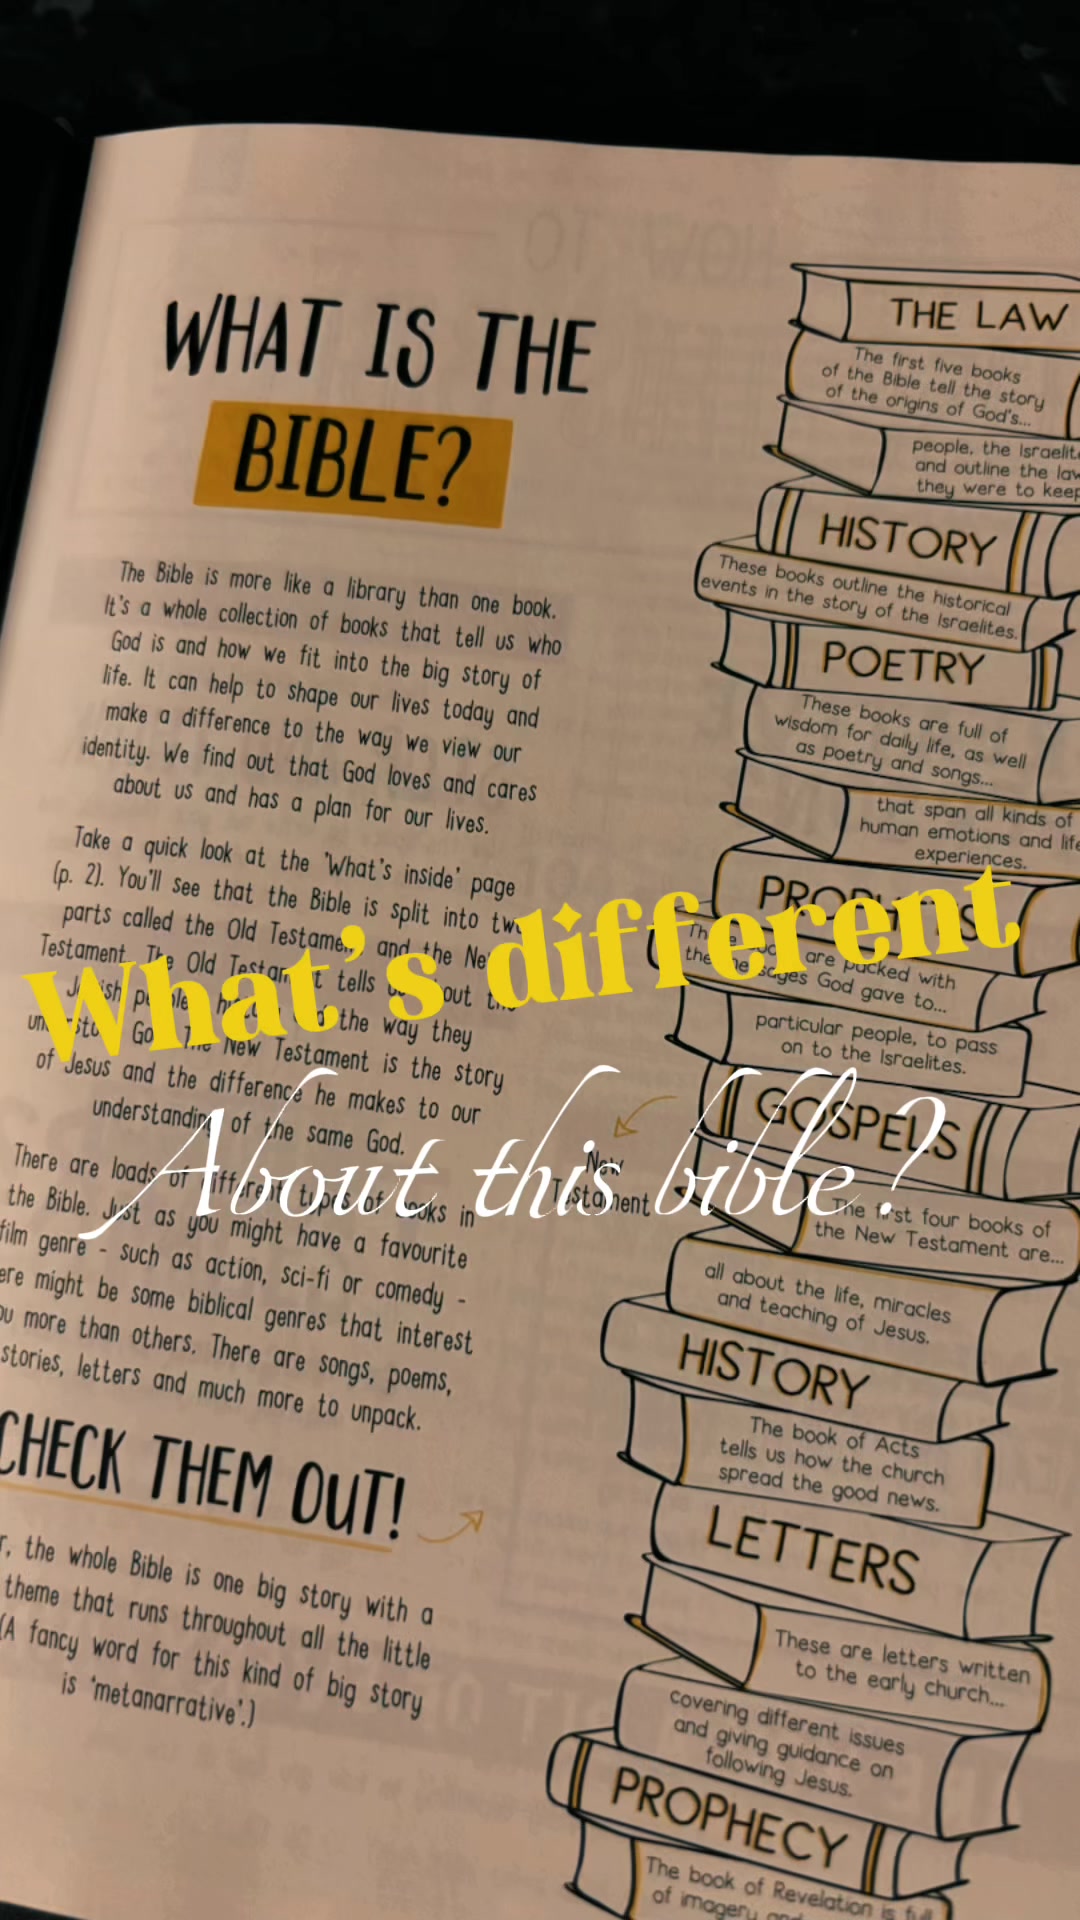 WHAT IS THE
BIBLE?
The Bible is more like a library than one book.
It's a whole collection of books that tell us who
God is and how we fit into the big story of
life. It can help to shape our lives today and
make a difference to the way we view our
identity. We find out that God loves and cares
about us and has a plan for our lives.
Take a quick look at the 'What's inside' page
(p. 2). You'll see that the Bible is split into two
parts called the Old Testament and the New
Testament. The Old Testament tells about the
people the way they
The New Testament is the story
of Jesus and the difference he makes to our
understanding of the same God.
There are loads of different types of books in
the Bible. Just as you might have a favourite
film genre - such as action, sci-fi or comedy -
might be some biblical genres that interest
more than others. There are songs, poems,
stories, letters and much more to unpack.
CHECK THEM OUT!
the whole Bible is one big story with a
theme that runs throughout all the little
(A fancy word for this kind of big story
is 'metanarrative'.)
THE LAW
The first five books
of the Bible tell the story
of the origins of God's...
people, the
and outline the
they were to keep
HISTORY
These books outline the historical
events in the story of the Israelites.
POETRY
These books are full of
wisdom for daily life, as well
as poetry and songs...
that span all kinds of
human emotions and life
experiences.
PROPHETS
are packed with
God gave to...
particular people, to pass
on to the Israelites.
New
Testament
GOSPELS
The first four books of
the New Testament are...
all about the life, miracles
and teaching of Jesus.
HISTORY
The book of Acts
tells us how the church
spread the good news.
LETTERS
These are letters written
to the early church...
covering different issues
and giving guidance on
following Jesus.
PROPHECY
The book of Revelation is full
of imagery
What's different
About this bible?